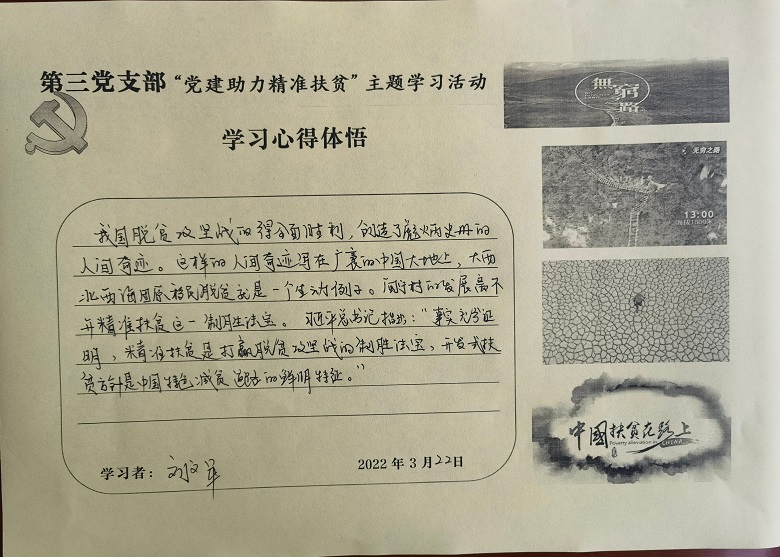 第三党支部“党建助力精准扶贫”主题学习活动
学习心得体悟
我国脱贫攻坚战的得全面胜利，创造了彪炳史册的
人间奇迹。这样的人间奇迹写在广袤的中国大地上，大西
北西海固原移民脱贫就是一个生动例子。闽宁村的发展离不
开精准扶贫这一制胜法宝。习近平总书记指出：“事实充分证
明，精准扶贫是打赢脱贫攻坚战的制胜法宝，开发式扶
贫方针是中国特色减贫道路的鲜明特征。”
学习者：刘文军
2022 年 3 月 22 日
無窮路
无穷之路
13:00
中國扶贫在路上
Poverty alleviation in CHINA